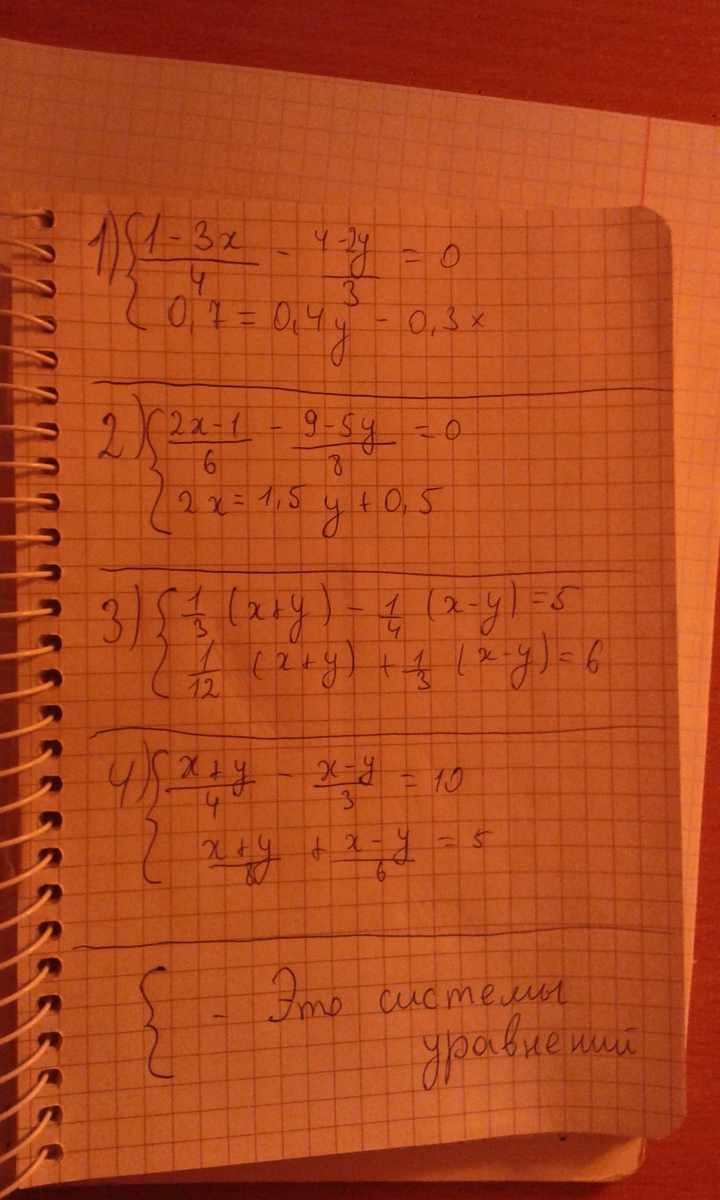 1) { (1-3x)/4 - (4-2y)/3 = 0
0,7 = 0,4y - 0,3x
2) { (2x-1)/6 - (9-5y)/8 = 0
2x = 1,5y + 0,5
3) { 1/3 (x+y) - 1/4 (x-y) = 5
1/12 (x+y) + 1/3 (x-y) = 6
4) { (x+y)/4 - (x-y)/3 = 10
(x+y)/8 + (x-y)/6 = 5
{ - Это системы
уравнений